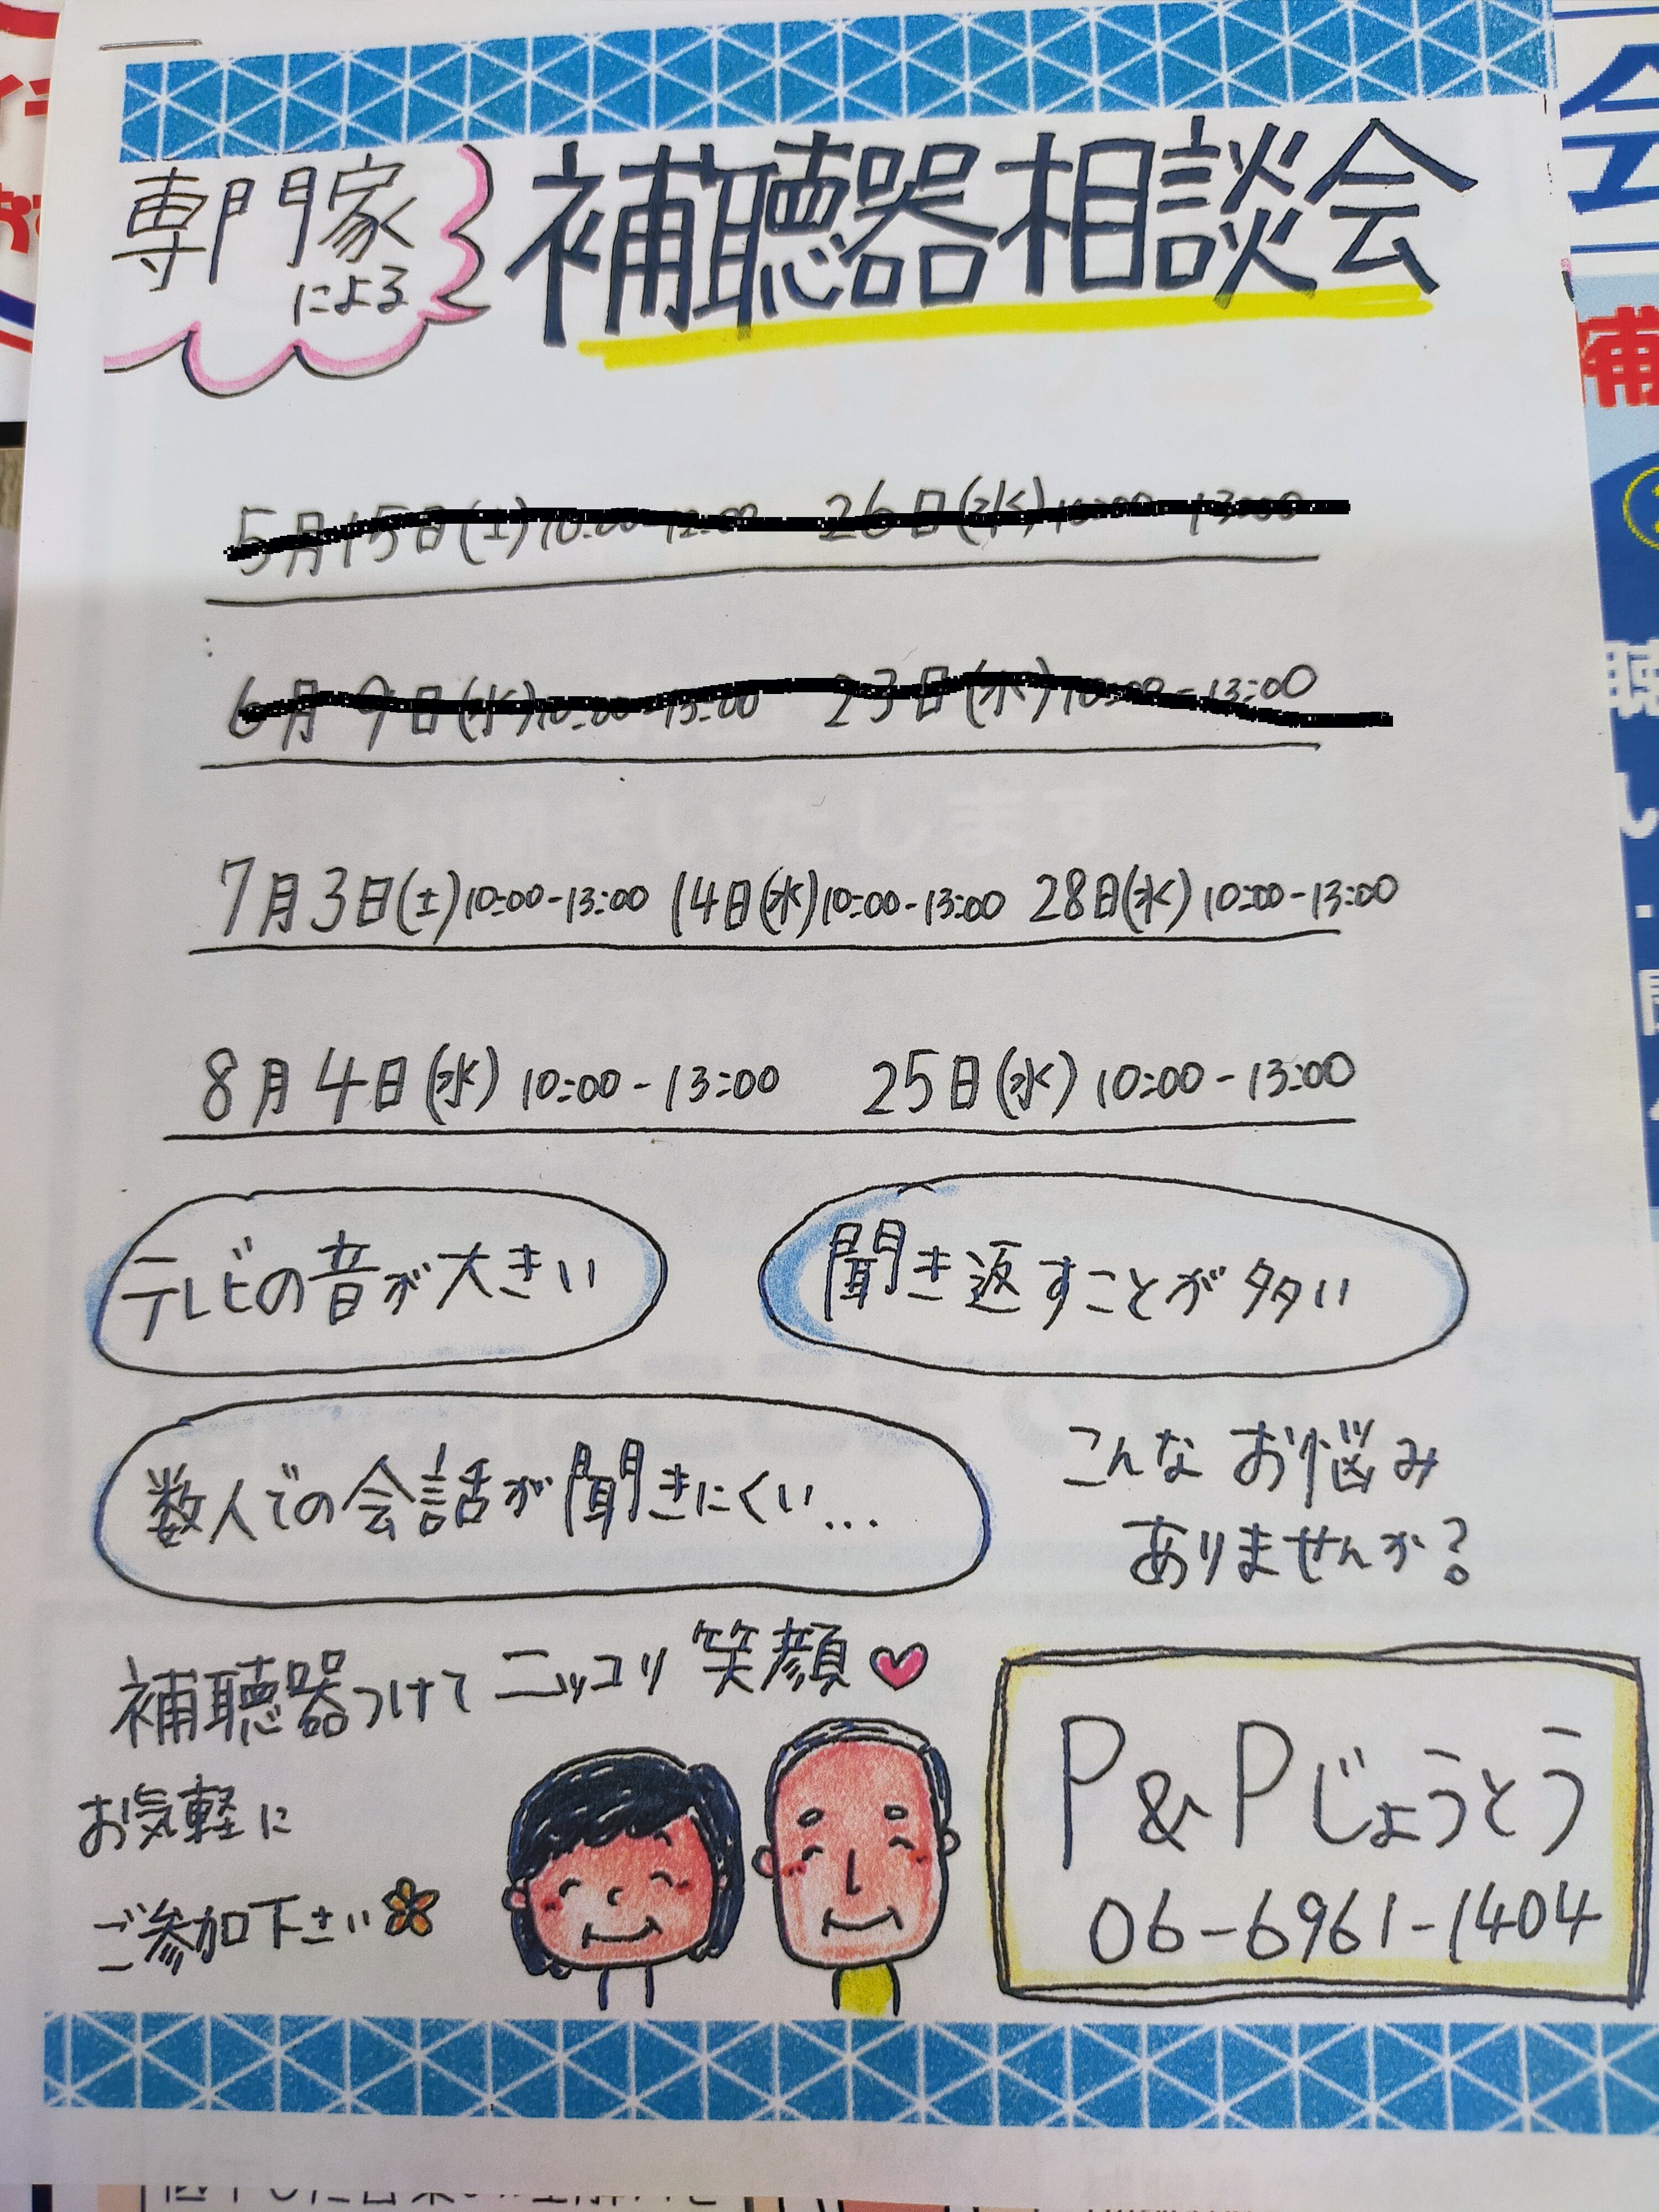 専門家
による
補聴器相談会
5月15日(土)10:00-12:00 26日(水)10:00-13:00
6月9日(水)10:00-13:00 23日(水)10:00-13:00
7月3日(土)10:00-13:00 14日(水)10:00-13:00 28日(水)10:00-13:00
8月4日(水)10:00-13:00 25日(水)10:00-13:00
テレビの音が大きい
聞き返すことが多い
数人での会話が聞きにくい...
こんなお悩み
ありませんか?
補聴器つけてニッコリ笑顔
お気軽に
ご参加下さい
P&Pじょうとう
06-6961-1404